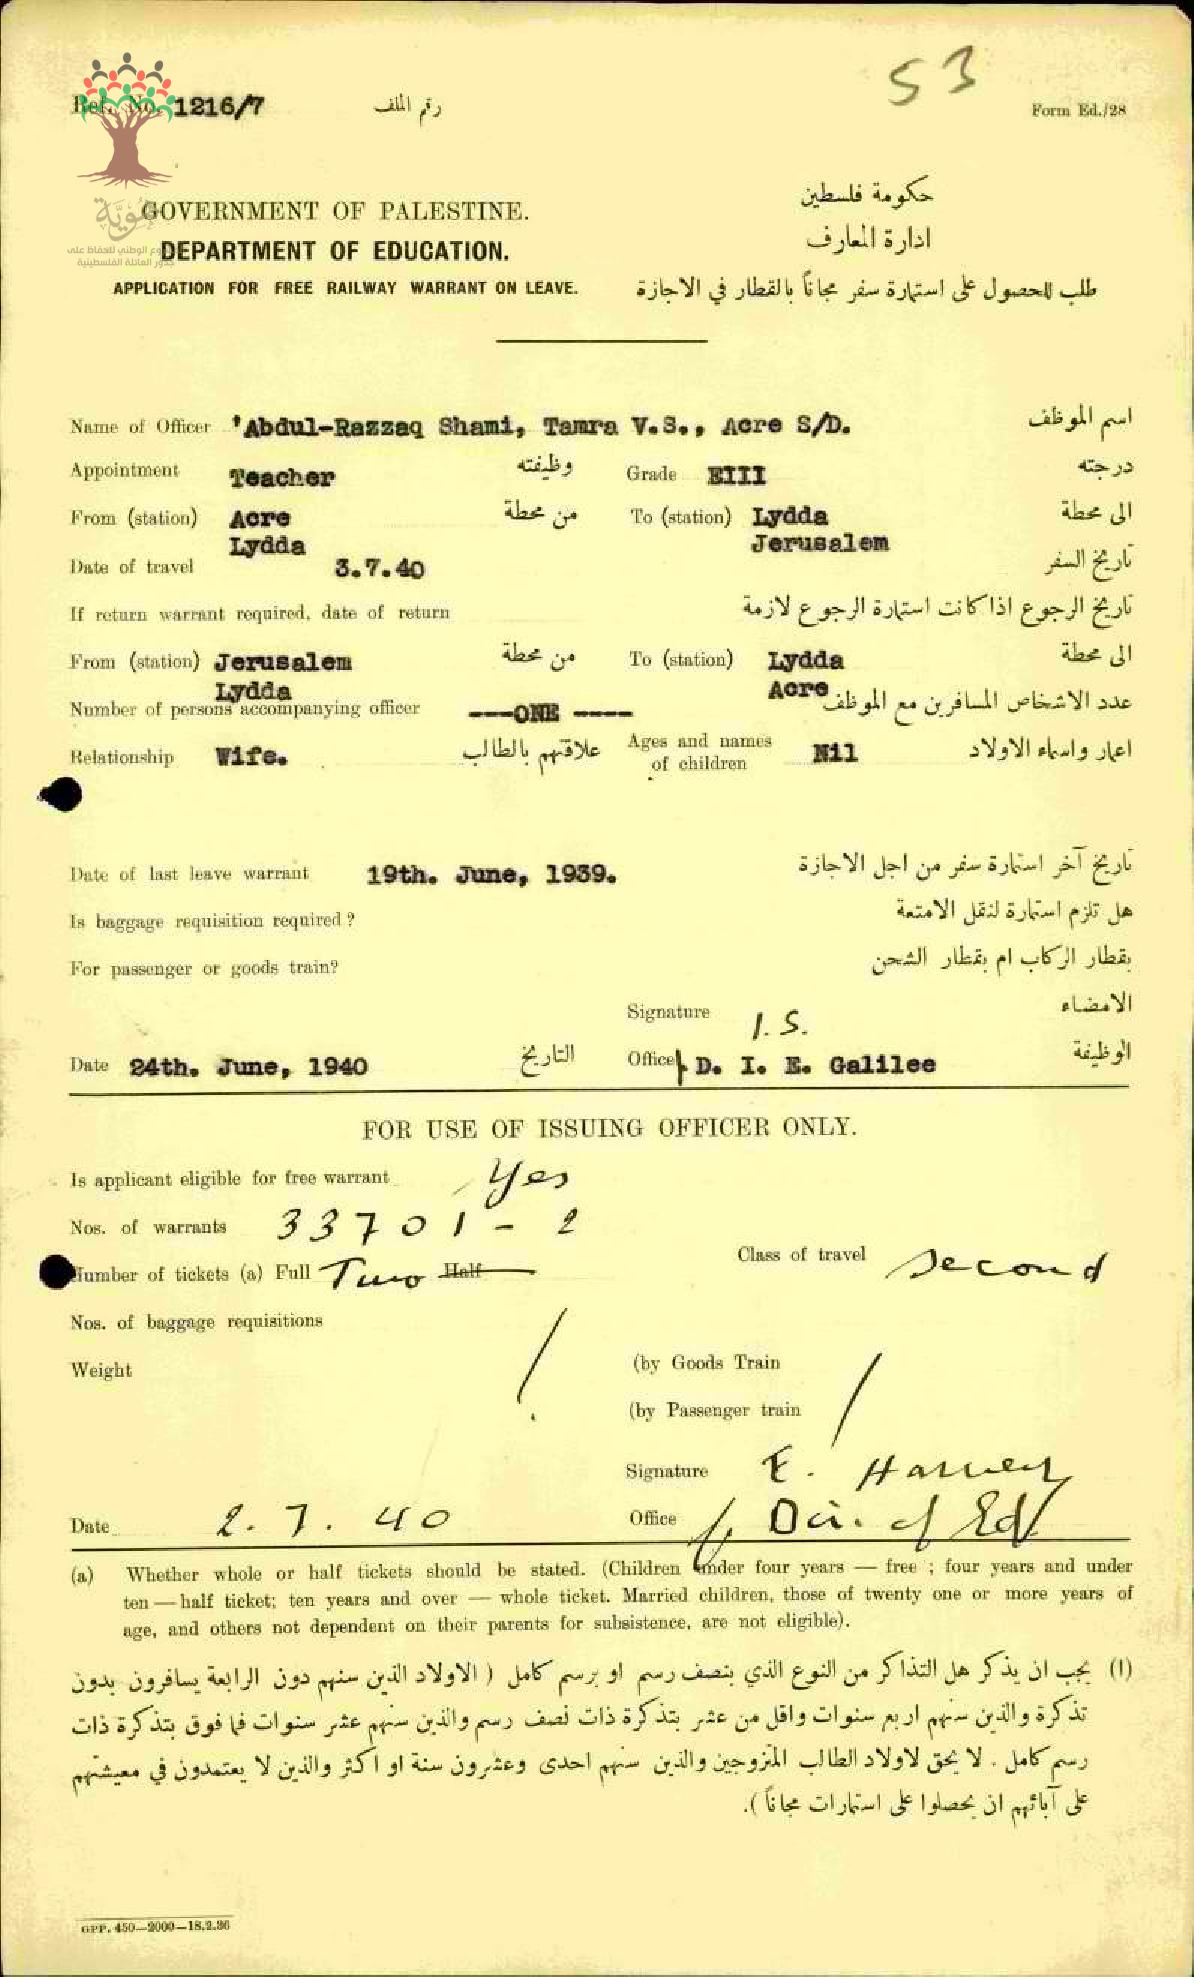 53
Ref. No. 1216/7 رقم الملف Form Ed./28
حكومة فلسطين
GOVERNMENT OF PALESTINE.
ادارة المعارف
DEPARTMENT OF EDUCATION.
هُوِيَّة
المشروع الوطني للحفاظ على
جذور العائلة الفلسطينية
APPLICATION FOR FREE RAILWAY WARRANT ON LEAVE. طلب للحصول على استمارة سفر مجاناً بالقطار في الاجازة
Name of Officer 'Abdul-Razzaq Shami, Tamra V.S., Acre S/D. اسم الموظف
Appointment Teacher وظيفته Grade EIII درجته
From (station) Acre من محطة To (station) Lydda الى محطة
Lydda Jerusalem
Date of travel 3.7.40 تاريخ السفر
If return warrant required, date of return تاريخ الرجوع اذا كانت استمارة الرجوع لازمة
From (station) Jerusalem من محطة To (station) Lydda الى محطة
Lydda Acre
Number of persons accompanying officer ---ONE ---- عدد الاشخاص المسافرين مع الموظف
Relationship Wife. علاقتهم بالطالب Ages and names of children Nil اعمار واسماء الاولاد
Date of last leave warrant 19th. June, 1939. تاريخ آخر استمارة سفر من اجل الاجازة
Is baggage requisition required ? هل تلزم استمارة لنقل الامتعة
For passenger or goods train? بقطار الركاب ام بقطار الشحن
Signature I.S. الامضاء
Date 24th. June, 1940 التاريخ Office D. I. E. Galilee الوظيفة
FOR USE OF ISSUING OFFICER ONLY.
Is applicant eligible for free warrant Yes
Nos. of warrants 33701-2
Class of travel Second
Number of tickets (a) Full Two Half
Nos. of baggage requisitions
Weight (by Goods Train
(by Passenger train
Signature E. Harvey
Date 2.7.40 Office f. Dir. of Ed.
(a) Whether whole or half tickets should be stated. (Children under four years — free ; four years and under
ten — half ticket; ten years and over — whole ticket. Married children, those of twenty one or more years of
age, and others not dependent on their parents for subsistence, are not eligible).
(ا) يجب ان يذكر هل التذاكر من النوع الذي بنصف رسم او برسم كامل ( الاولاد الذين سنهم دون الرابعة يسافرون بدون
تذكرة والذين سنهم اربع سنوات واقل من عشر بتذكرة ذات نصف رسم والذين سنهم عشر سنوات فما فوق بتذكرة ذات
رسم كامل . لا يحق لاولاد الطالب المتزوجين والذين سنهم احدى وعشرون سنة او اكثر والذين لا يعتمدون في معيشتهم
على آبائهم ان يحصلوا على استمارات مجاناً ).
GPP. 450—2000—18.2.36